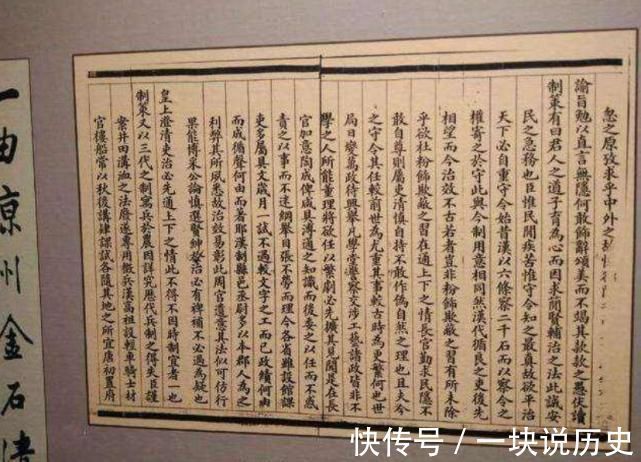 忽之原孜求乎中外之
諭旨勉以直言無隱何敢飾辭頌美而不竭其款款之愚伏讀
制策有曰君人之道子育為心而因求簡賢輔治之法此誠安
民之急務也臣惟民間疾苦惟守令知之最真故欲平治
天下必自重守令始昔漢以六條察二千石而以察令之
權寄之於守此與今制用意相同然漢代循良之吏後先
相望而今治效不古若者豈非粉飾欺蔽之習有所未除
乎欲杜粉飾欺蔽之習在通上下之情長官勤求民隱不
敢自尊則屬吏清慎自持不敢作偽自然之理也且夫今
之守令其任較前世為尤重其事較古時為更繁何也世
局日變萬政待興舉凡學堂警察交涉工藝諸政皆非不
學之人所能董理將欲任以繁劇必先擴其見聞是在長
官加意陶成俾咸具溥通之知識而後委之以任而不惑
責之以事而不迷綱舉目張不勞而理今各省雖設館課
吏多屬具文歲月一試不過較文字之工而已政績何由
而成循聲何由而著耶漢制縣邑丞尉多以本郡人為之
利弊其所夙悉故治效易彰此周官遺意其法似可仿行
果能博采公論慎選賢紳整治必有裨補不必過為疑也
皇上澄清吏治必先通上下之情此不得不因時制宜者一也
制策又以三代之制寓兵於農因詳究歷代兵制之得失臣謹
案井田溝洫之法廢遂專用徵兵漢高祖設輕車騎士材
官樓船常以秋後講肄課試各隨其地之所宜唐初置府
一由涼州金石
快传号/一块说历史